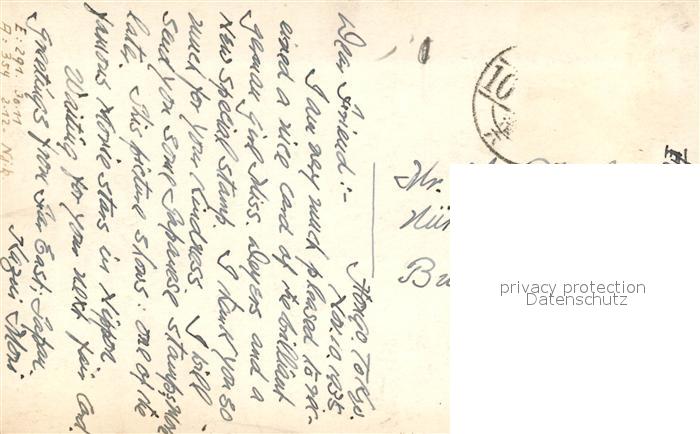 Hongo Tokyo.
Xd. 10. 1935
Dear Friend:-
I am very much pleased to re-
ceived a nice card of the brilliant
German Girl Miss. Deyers and a
New special stamp. I thank you so
much for your Kindness. I will
send you some Japanese stamps
later. This picture shows: one of the
famous Movie Stars in Nippon
Waiting for your next fair Card.
Greetings from Far East: Japan.
Mori.
Mr.
10
E: 291. 30.11.
A: 354 2.12.
privacy protection
Datenschutz